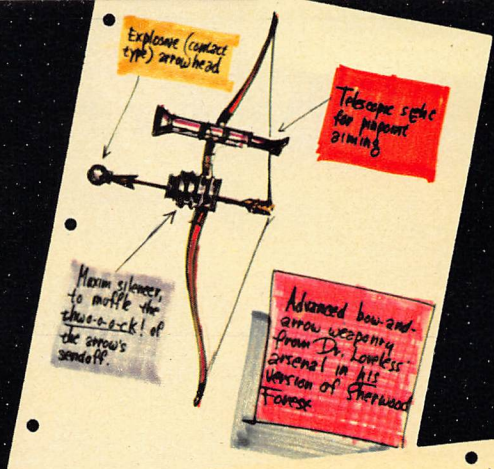 Explosive (contact
type) arrowhead
Telescopic sight
for pinpoint
aiming
Maxim silencer,
to muffle the
thwo-o-o-ck! of
the arrow's
sendoff.
Advanced bow-and-
arrow weaponry
from Dr. Loveless'
arsenal in his
version of Sherwood
Forest